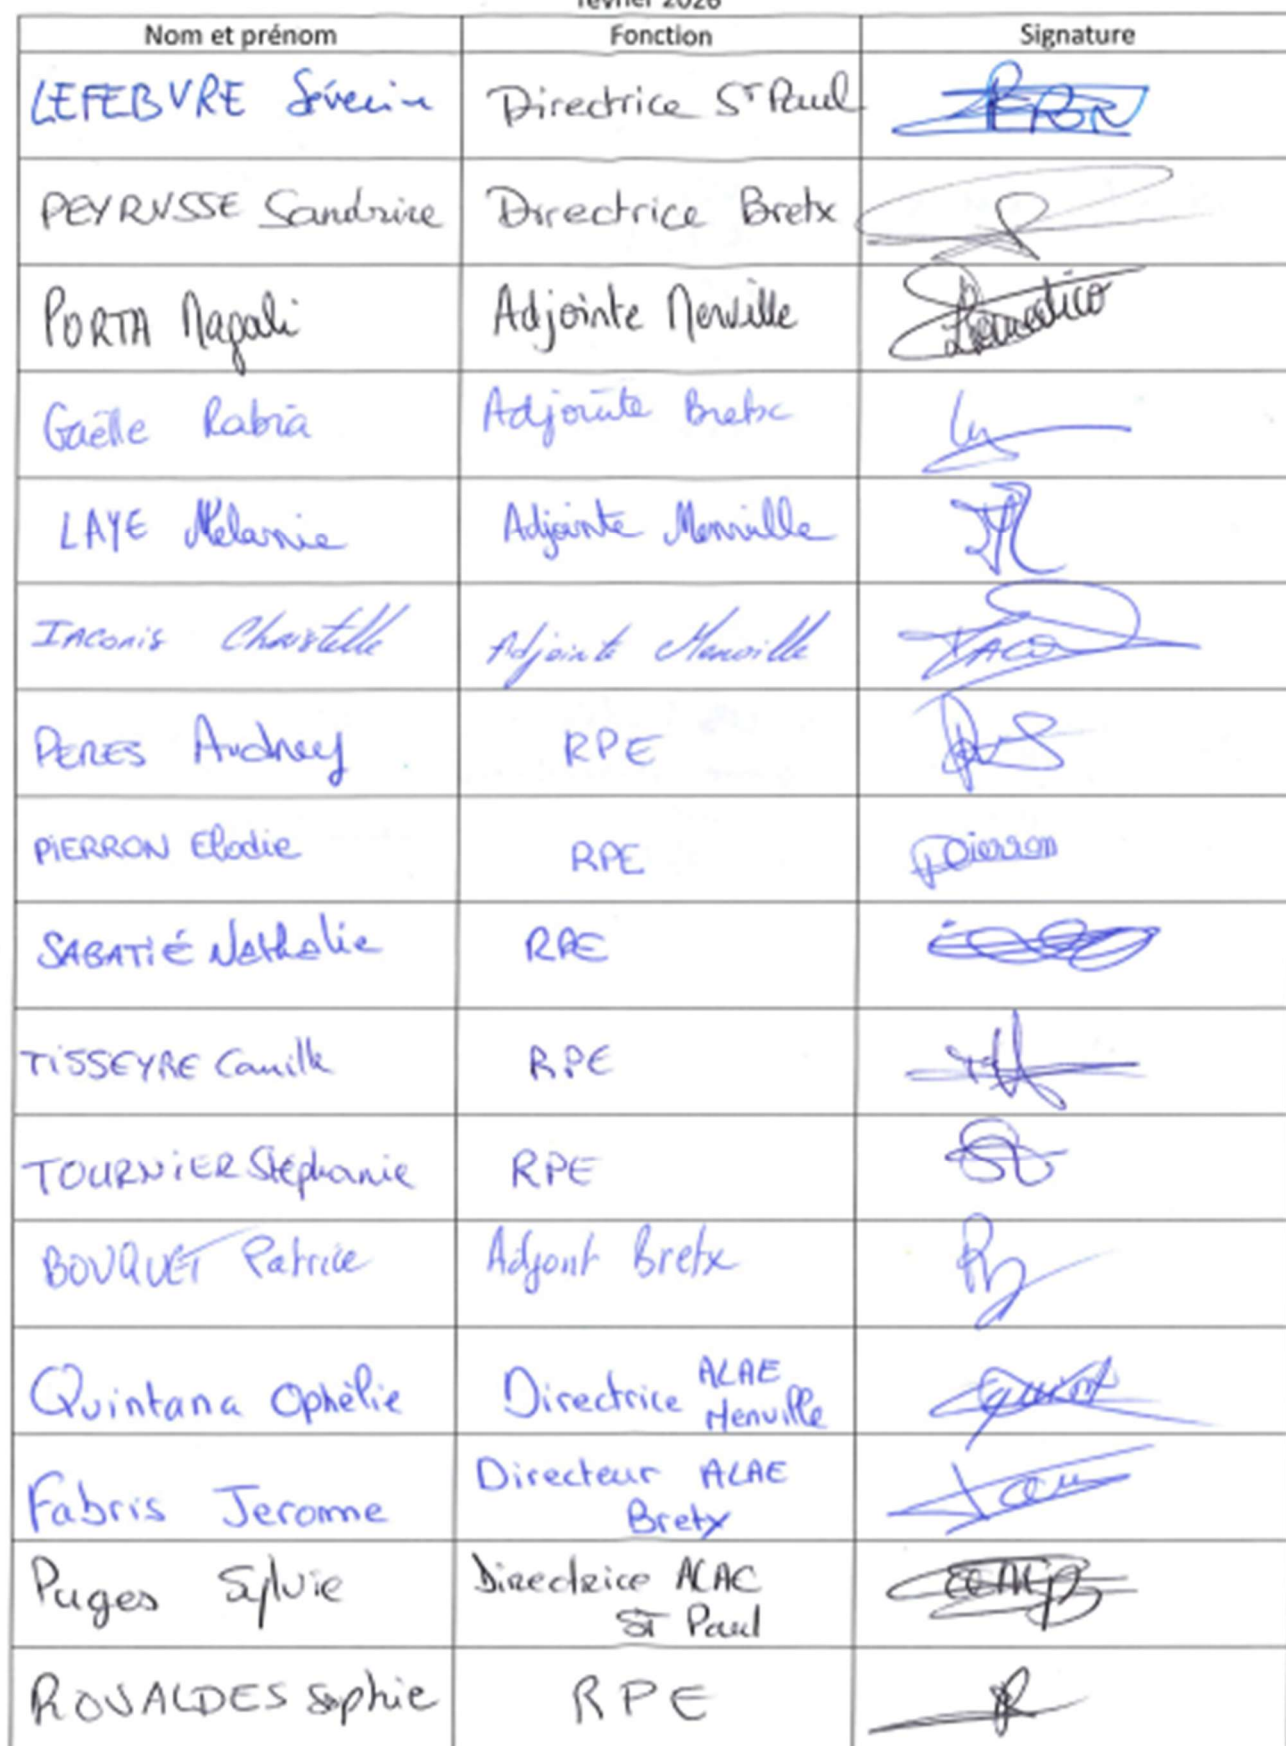 février 2026
Nom et prénom Fonction Signature
LEFEBVRE Séverine Directrice St Paul
PEYRUSSE Sandrine Directrice Bretx
PORTA Magali Adjointe Menville
Gaëlle Rabia Adjointe Bretx
LAYE Mélanie Adjointe Menville
IACONIS Christelle Adjointe Menville IACO
PERES Audrey RPE
PIERRON Elodie RPE pierron
SABATIÉ Nathalie RPE
TISSEYRE Camille RPE
TOURNIER Stéphanie RPE
BOUQUET Patrice Adjoint Bretx
Quintana Ophélie Directrice ALAE
Menville
Fabris Jerome Directeur ALAE
Bretx
Pages Sylvie Directrice ALAC
ST Paul
ROUALDES Sophie RPE